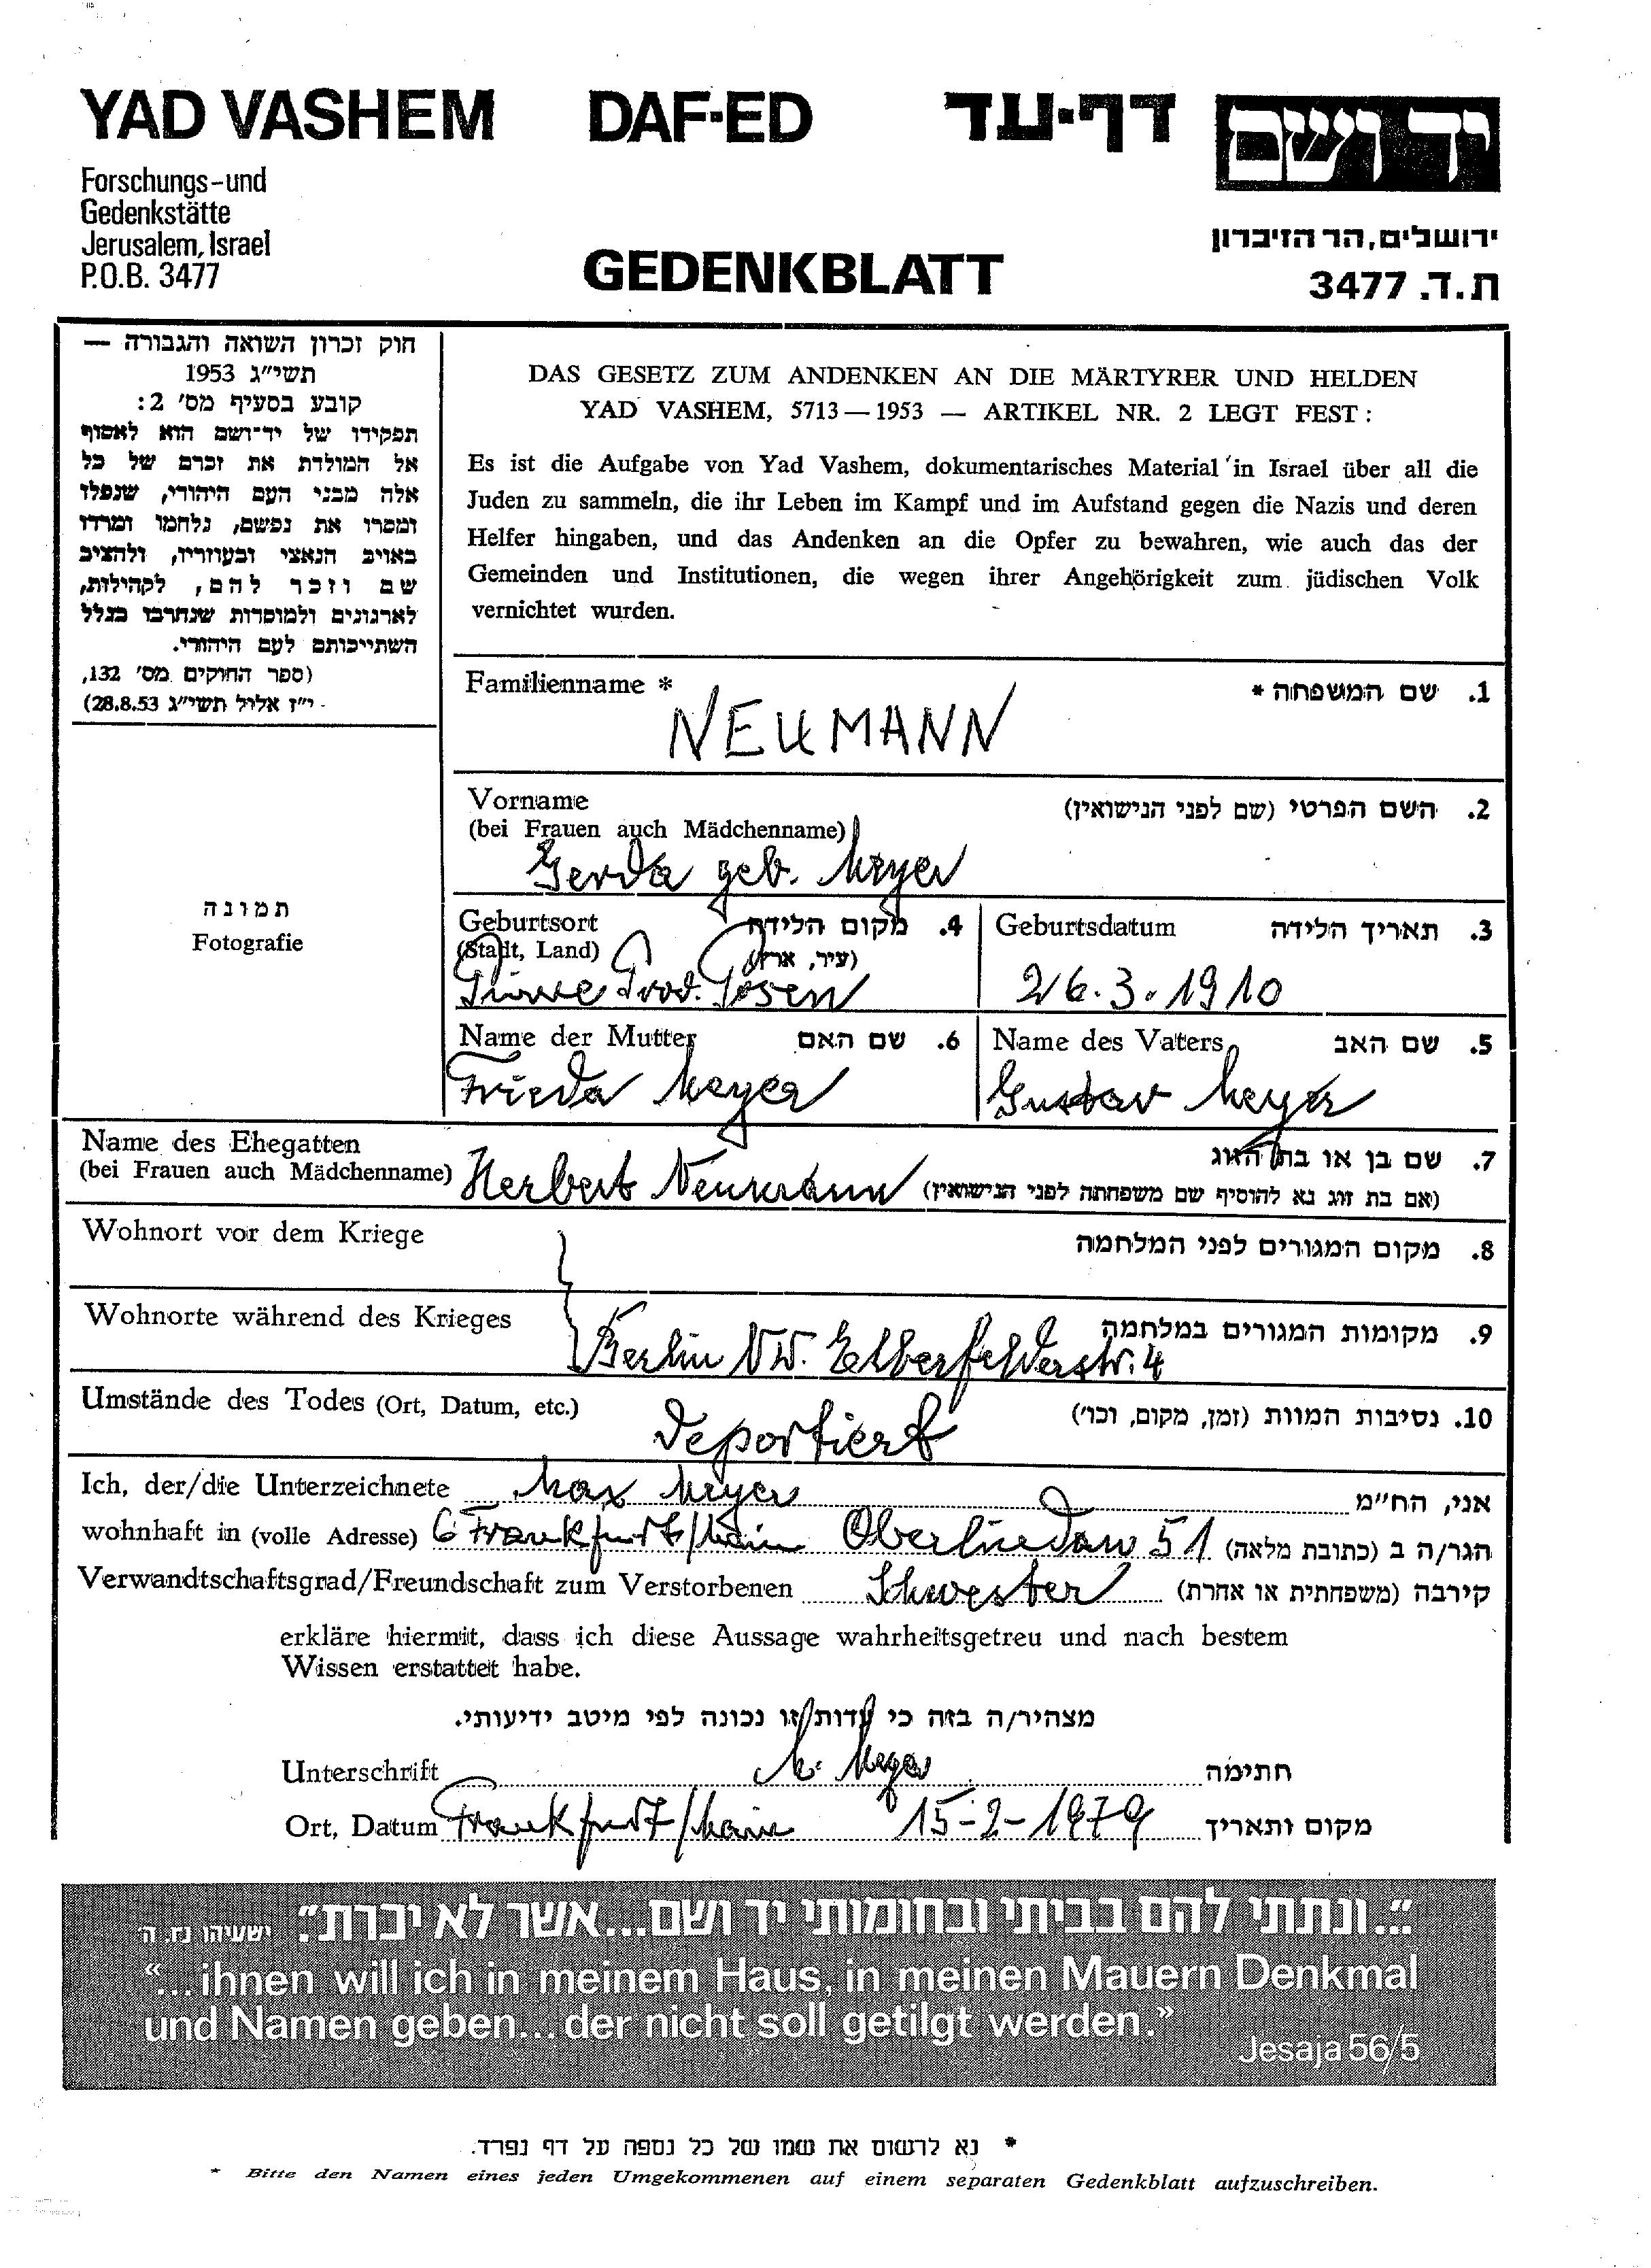 YAD VASHEM DAF-ED דף-עד יד ושם
Forschungs-und
Gedenkstätte
Jerusalem, Israel
P.O.B. 3477
GEDENKBLATT
ירושלים, הר הזיכרון
ת.ד. 3477
חוק זכרון השואה והגבורה —
תשי"ג 1953
קובע בסעיף מס' 2:
תפקידו של יד-ושם הוא לאסוף
אל המולדת את זכרם של כל
אלה מבני העם היהודי, שנפלו
ומסרו את נפשם, נלחמו ומרדו
באויב הנאצי ובעוזריו, ולהציב
שם וזכר להם, לקהילות,
לארגונים ולמוסדות שנחרבו בגלל
השתייכותם לעם היהודי.
(ספר החוקים מס' 132,
י"ז אלול תשי"ג 28.8.53)
DAS GESETZ ZUM ANDENKEN AN DIE MÄRTYRER UND HELDEN
YAD VASHEM, 5713—1953 — ARTIKEL NR. 2 LEGT FEST:
Es ist die Aufgabe von Yad Vashem, dokumentarisches Material in Israel über all die
Juden zu sammeln, die ihr Leben im Kampf und im Aufstand gegen die Nazis und deren
Helfer hingaben, und das Andenken an die Opfer zu bewahren, wie auch das der
Gemeinden und Institutionen, die wegen ihrer Angehörigkeit zum jüdischen Volk
vernichtet wurden.
Familienname * 1. שם המשפחה *
NEUMANN
Vorname 2. השם הפרטי (שם לפני הנישואין)
(bei Frauen auch Mädchenname)
Gerda geb. Meyer
תמונה
Fotografie
Geburtsort 4. מקום הלידה
(Stadt, Land) (עיר, ארץ)
Prov. Posen
Geburtsdatum 3. תאריך הלידה
26.3.1910
Name der Mutter 6. שם האם
Frieda Meyer
Name des Vaters 5. שם האב
Gustav Meyer
Name des Ehegatten 7. שם בן או בת הזוג
(bei Frauen auch Mädchenname) Herbert Neumann (אם בת זוג נא להוסיף שם משפחתה לפני הנישואין)
Wohnort vor dem Kriege 8. מקום המגורים לפני המלחמה
Wohnorte während des Krieges 9. מקומות המגורים במלחמה
Berlin NW. Elberfelderstr. 4
Umstände des Todes (Ort, Datum, etc.) 10. נסיבות המוות (זמן, מקום, וכו')
Deportiert
Ich, der/die Unterzeichnete Max Meyer אני, הח"מ
wohnhaft in (volle Adresse) 6 Frankfurt/Main Oberlindau 51 הגר/ה ב (כתובת מלאה)
Verwandtschaftsgrad/Freundschaft zum Verstorbenen Schwester קירבה (משפחתית או אחרת)
erkläre hiermit, dass ich diese Aussage wahrheitsgetreu und nach bestem
Wissen erstattet habe.
מצהיר/ה בזה כי עדות/זו נכונה לפי מיטב ידיעותי.
Unterschrift M. Meyer חתימה
Ort, Datum Frankfurt/Main 15-2-1979 מקום ותאריך
"...ונתתי להם בביתי ובחומותי יד ושם...אשר לא יכרת". ישעיהו נו. ה'
"...ihnen will ich in meinem Haus, in meinen Mauern Denkmal
und Namen geben... der nicht soll getilgt werden."
Jesaja 56/5
* נא לרשום את שמו של כל נספה על דף נפרד.
* Bitte den Namen eines jeden Umgekommenen auf einem separaten Gedenkblatt aufzuschreiben.